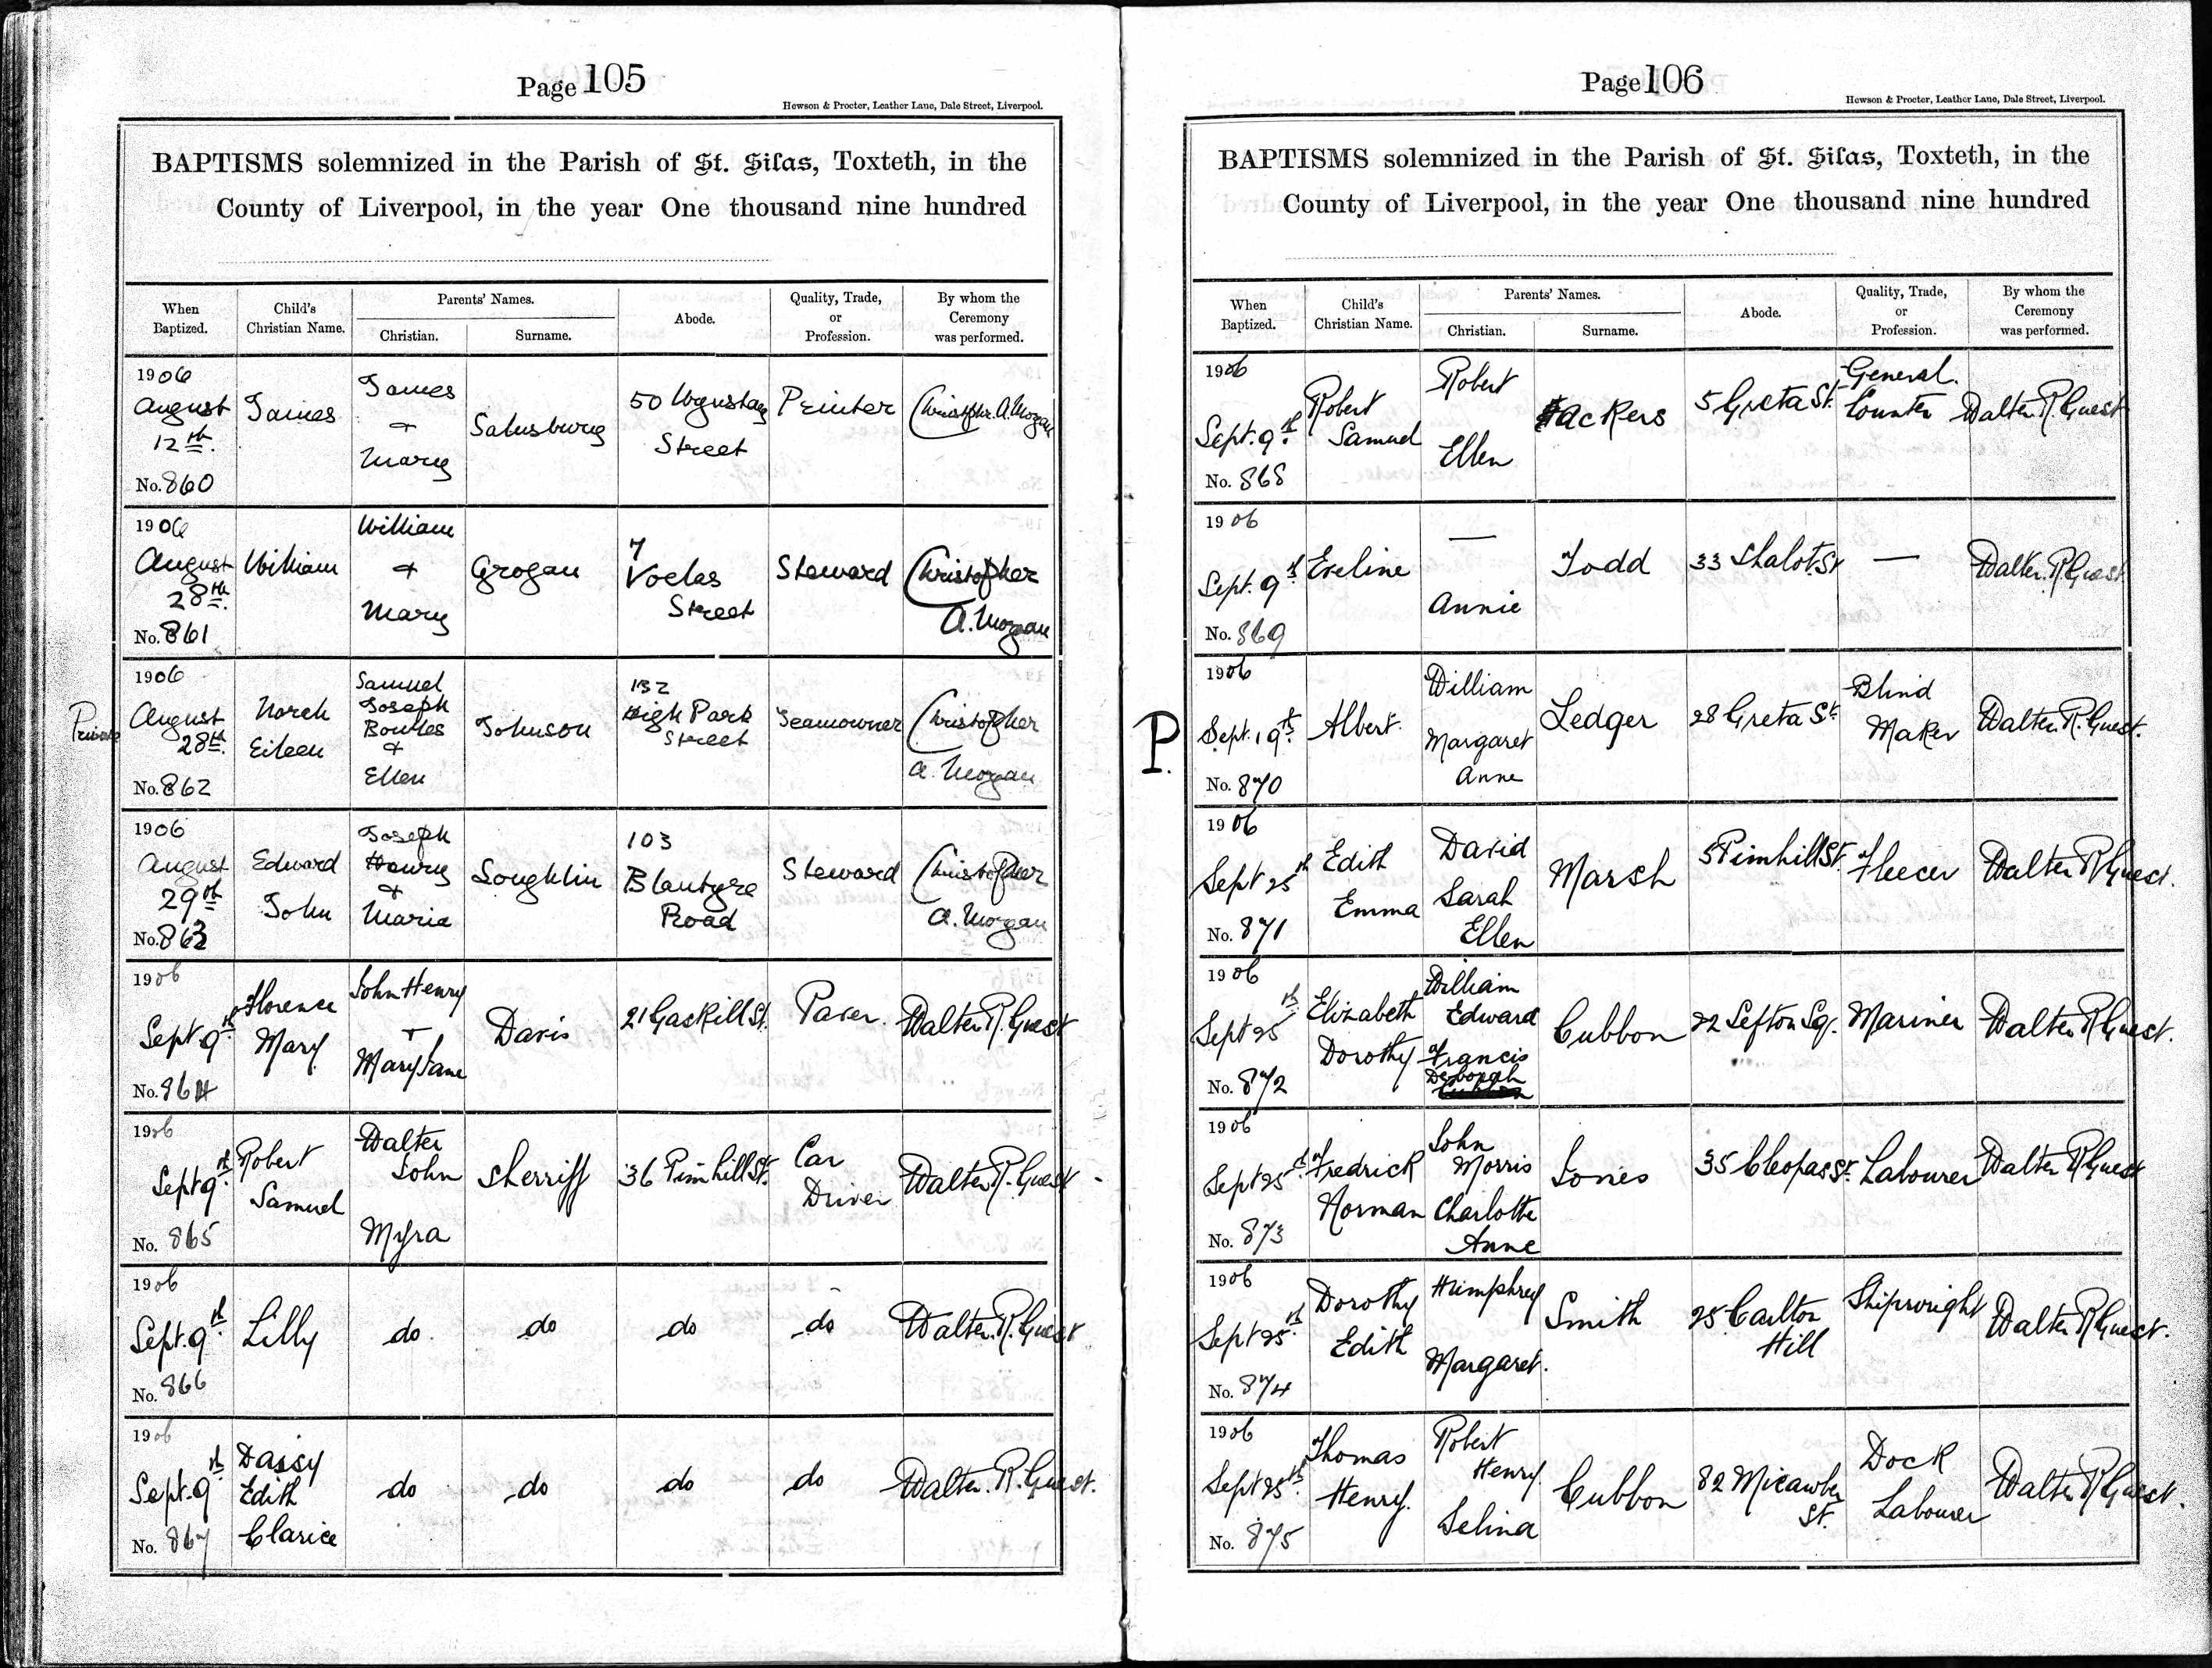 Page 105
Hewson & Procter, Leather Lane, Dale Street, Liverpool.
BAPTISMS solemnized in the Parish of St. Silas, Toxteth, in the
County of Liverpool, in the year One thousand nine hundred
When Baptized.
Child's Christian Name.
Parents' Names.
Christian.
Surname.
Abode.
Quality, Trade, or Profession.
By whom the Ceremony was performed.
1906 August 12th. No. 860
James
James + Mary
Salusbury
50 Street
Printer
Christphr. A. Morgan
1906 August 28th. No. 861
William
William + Mary
Grogan
7 Voelas Street
Steward
Christopher A. Morgan
Private
1906 August 28th. No. 862
Norah Eileen
Samuel Joseph Bowles + Ellen
Johnson
132 High Park Street
Christopher A. Morgan
1906 August 29th No. 863
Edward John
Joseph Henry + Maria
Loughlin
103 Blantyre Road
Steward
Christopher A. Morgan
1906 Sept 9th. No. 864
Florence Mary
John Henry + Mary Jane
Davis
21 Gaskell St.
Paver
Walter R. Guest
1906 Sept 9th. No. 865
Robert Samuel
Walter John Myra
Sherriff
36 Pimhill St.
Car Driver
Walter R. Guest
1906 Sept. 9th. No. 866
Lilly
do.
do
do
do
Walter. R. Guest
1906 Sept. 9th No. 867
Daisy Edith Clarice
do
do
do
do
Walter. R. Guest.
Page 106
Hewson & Procter, Leather Lane, Dale Street, Liverpool.
BAPTISMS solemnized in the Parish of St. Silas, Toxteth, in the
County of Liverpool, in the year One thousand nine hundred
When Baptized.
Child's Christian Name.
Parents' Names.
Christian.
Surname.
Abode.
Quality, Trade, or Profession.
By whom the Ceremony was performed.
1906 Sept. 9th. No. 868
Robert Samuel
Robert Ellen
Ackers
5 Greta St.
General
Walter R. Guest
1906 Sept. 9th No. 869
Eveline
— Annie
Todd
33 Shalot St
—
Walter. R. Guest.
P.
1906 Sept. 19th. No. 870
Albert.
William Margaret Anne
Ledger
28 Greta St.
Blind Maker
Walter. R. Guest.
1906 Sept 25th No. 871
Edith Emma
David Sarah Ellen
Marsh
5 Pimhill St.
Walter R Guest.
1906 Sept 25th No. 872
Elizabeth Dorothy
William Edward Francis Deborah
Cubbon
22 Sefton Sq.
Mariner
Walter R Guest.
1906 Sept 25th No. 873
Fredrick Norman
John Morris Charlotte Anne
Jones
35 Cleopas St.
Labourer
Walter R Guest
1906 Sept 25th. No. 874
Dorothy Edith
Humphrey Margaret.
Smith
25 Carlton Hill
Shipwright
Walter R Guest.
1906 Sept 25th. No. 875
Thomas Henry.
Robert Henry. Selina
Cubbon
82 Micawber St.
Dock Labourer
Walter R Guest.